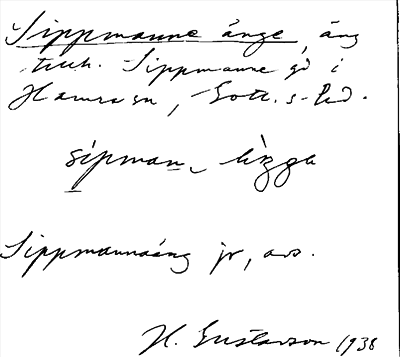 Sippmanne änge, äng
tillh. Sippmanne gd i
Hamra sn, Gotl. s. hd.
sipman
Sippmannaäng jr, avs.
H. Gustavson 1938